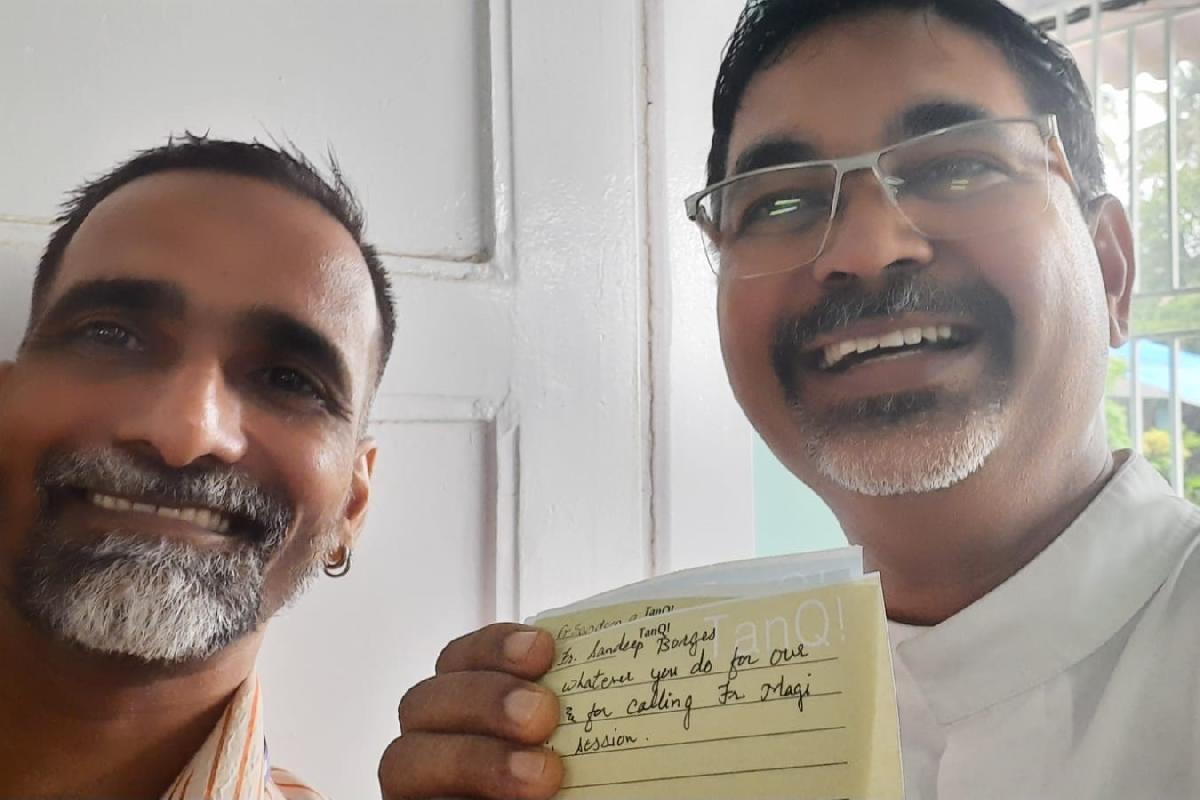 Fr. Sandeep
TanQ!
TanQ!
TanQ!
Fr. Sandeep Borges
whatever you do for our
& for calling Fr Magi
session.